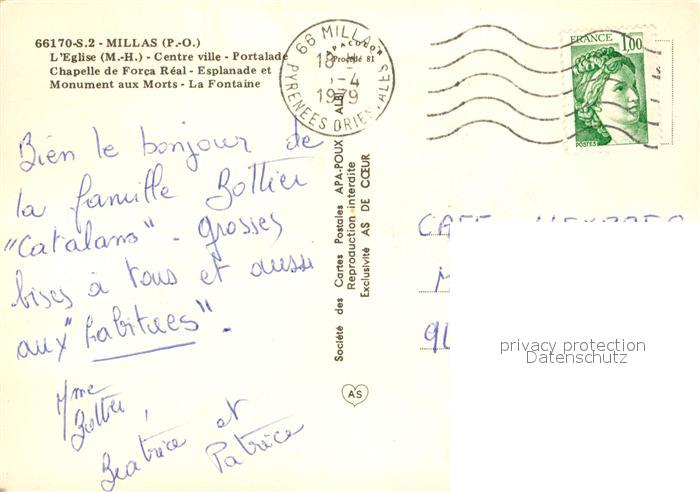 66170-S.2 - MILLAS (P.-O.)
L'Eglise (M.-H.) - Centre ville - Portalade
Chapelle de Força Réal - Esplanade et
Monument aux Morts - La Fontaine
66 MILLAS
PYRENEES ORIENTALES
18 H
-4
1979
APACOLOR
Procédé 81
ALBI
FRANCE
1,00
POSTES
Bien le bonjour de
la famille Bottier
"Catalans" - grosses
bises à tous et aussi
aux "habitues".
Mme
Bottier,
Béatrice et
Patrice
Société des Cartes Postales APA-POUX
Reproduction interdite
Exclusivité AS DE CŒUR
AS
CAFE
privacy protection
Datenschutz